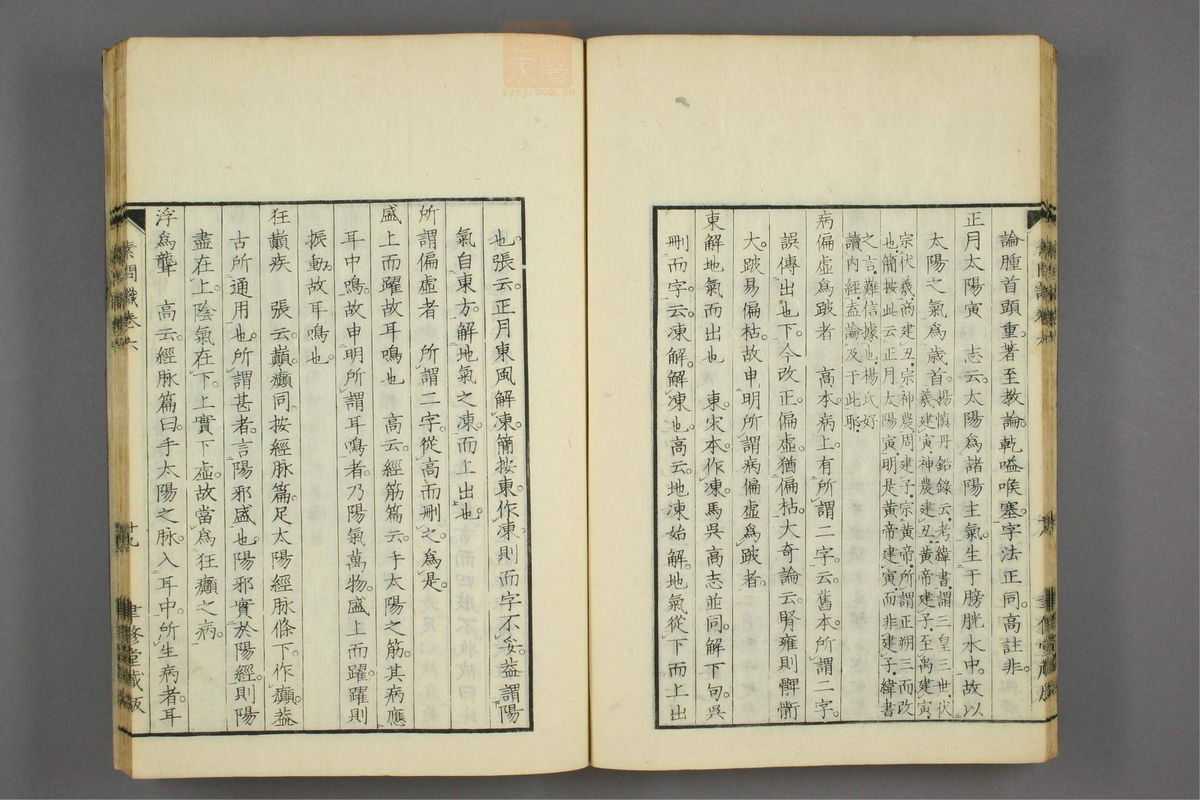 論腫首頭重。著至教論。乾嗌喉塞。字法正同。高註非。
正月太陽寅　志云。太陽為諸陽主氣。生于膀胱水中。故以
太陽之氣為歲首。
楊慎丹鉛錄云。考緯書謂三皇三世。伏
羲建寅。神農建丑。黃帝建子。至禹建寅。
宗伏羲。商建丑。宗神農。周建子。宗黃帝。所謂正朔三而改
也。簡按此云正月太陽寅。明是黃帝建寅。而非建子。緯書
之言。難信據也。楊氏好
讀內經。盍論及于此耶。
病偏虛為跛者　高本。病上有所謂二字。云舊本。所謂二字。
誤傳出也下。今改正。偏虛。猶偏枯。大奇論云。腎雍則髀䯒
大。跛易偏枯。故申明所謂病偏虛為跛者。
東解地氣而出也　東。宋本。作凍。馬吳高志並同。解下句。吳
刪而字云。凍解。解凍也。高云。地凍始解。地氣從下而上出
也。張云。正月東風解凍。簡按東。作凍。則而字不妥。蓋謂陽
氣自東方。解地氣之凍。而上出也。
所謂偏虛者　所謂二字。從高而刪之。為是。
盛上而躍故耳鳴也　高云。經筋篇云。手太陽之筋。其病應
耳中鳴。故申明所謂耳鳴者。乃陽氣萬物。盛上而躍。躍則
振動。故耳鳴也。
狂巔疾　張云。巔。癲同。按經脉篇。足太陽經脉條下。作癲。蓋
古所通用也。所謂甚者。言陽邪盛也。陽邪實於陽經。則陽
盡在上。陰氣在下。上實下虛。故當為狂癲之病。
浮為聾　高云。經脉篇曰。手太陽之脉。入耳中。所生病者。耳
素問識卷六
廿九
聿修堂藏版